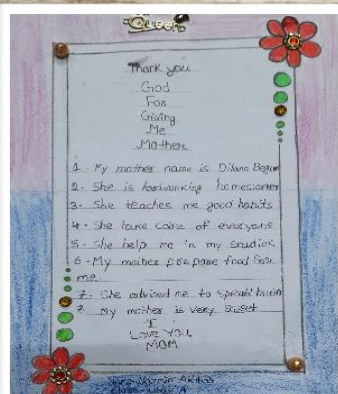 Queen
Thank you
God
For
Giving
Me
Mother
1- My mother name is Dilara Begum
2- She is hardworking
3- She teaches me good habits
4- She take care of everyone
5- She help me in my studies
6- My mother prepare food for
me.
7- She adviced me to
My mother is very sweet
I
LOVE YOU
MOM